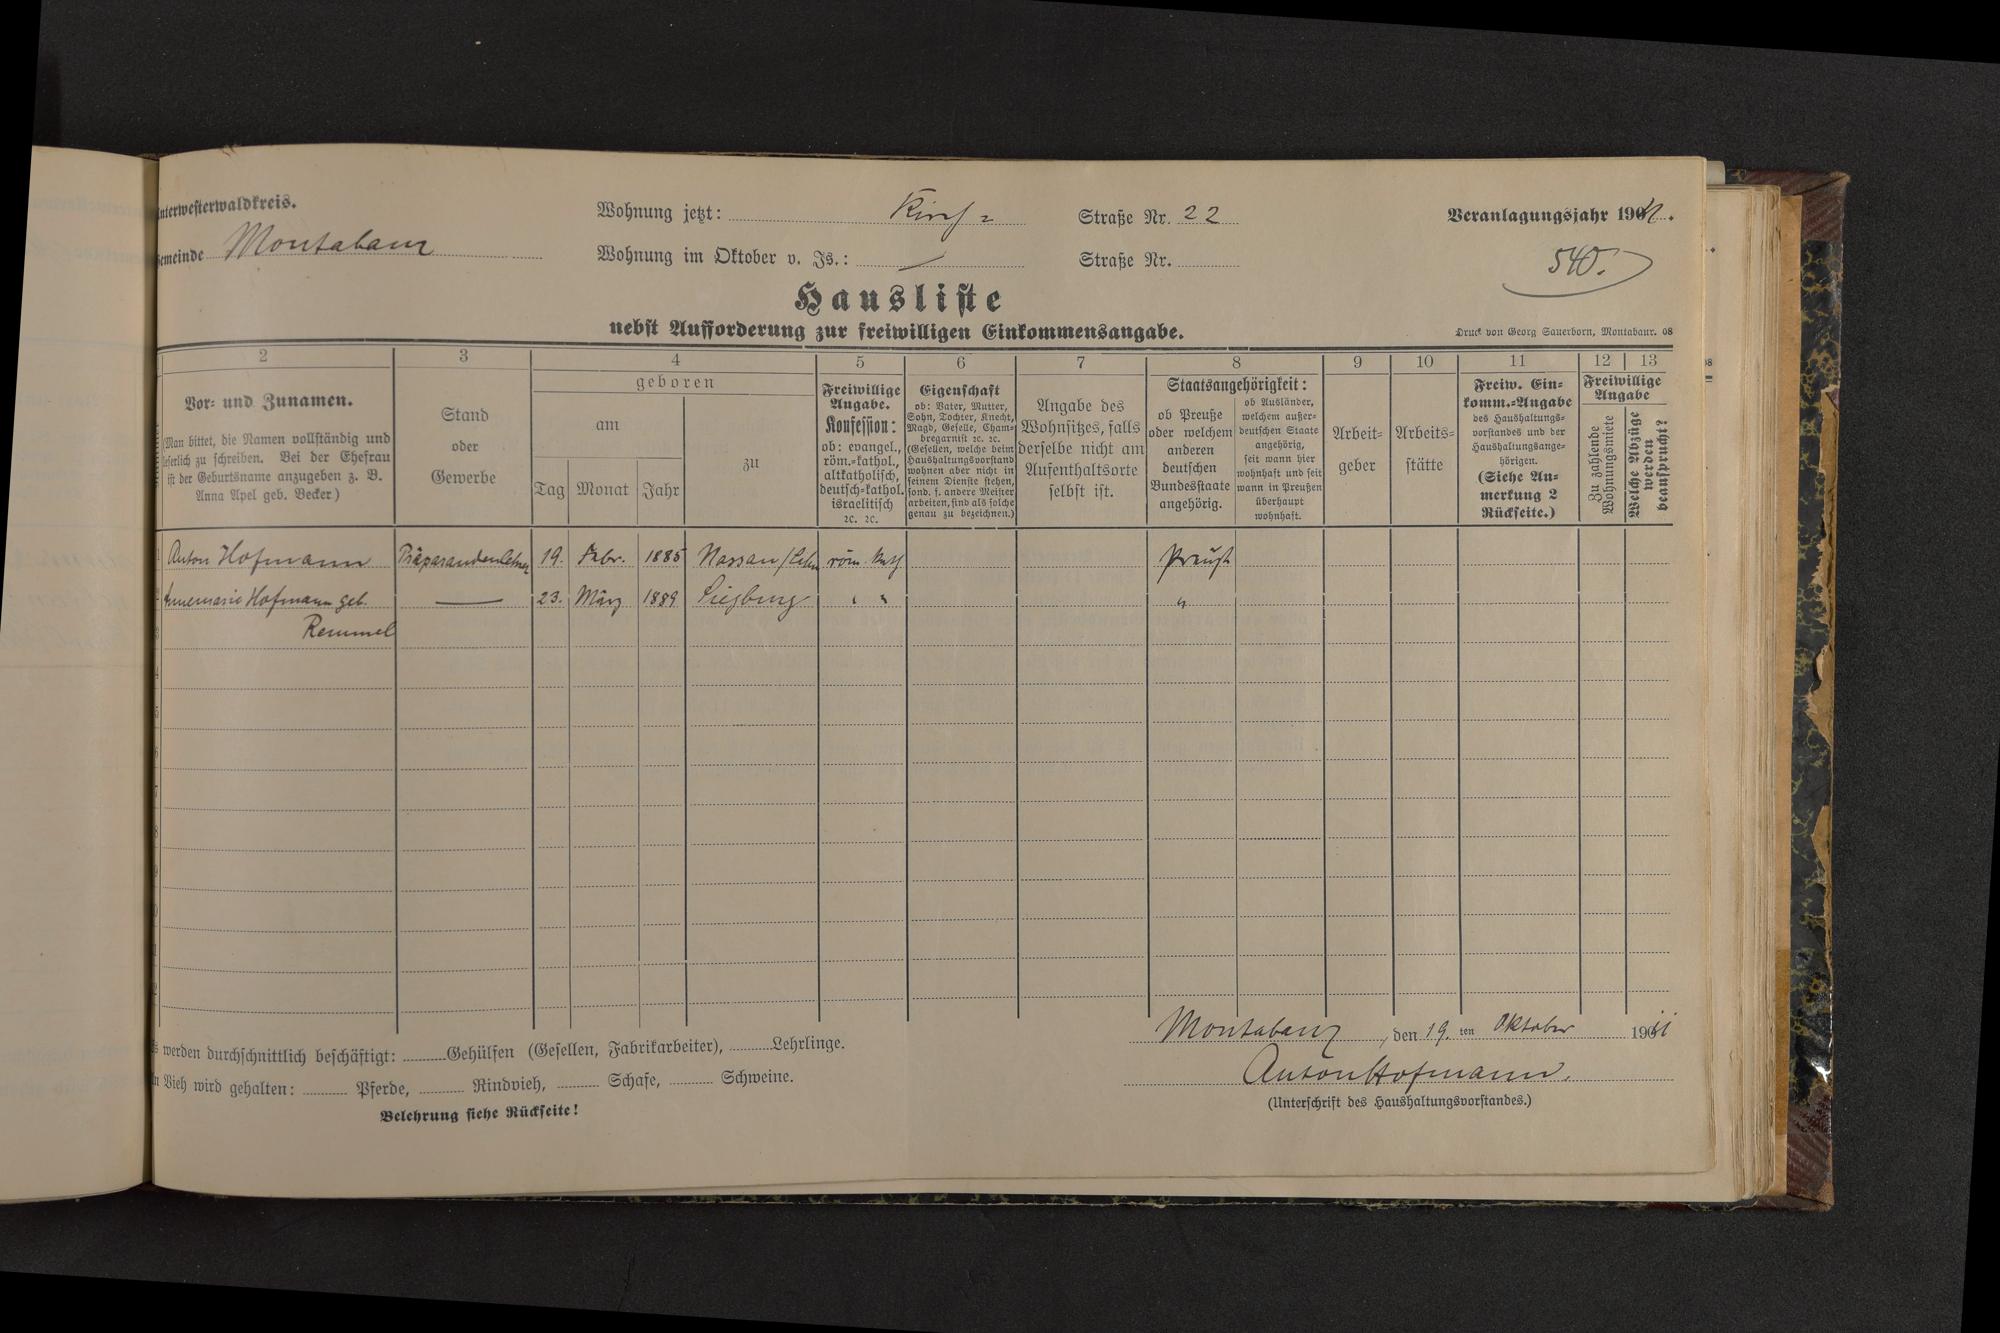 Unterwesterwaldkreis.
Gemeinde Montabaur
Wohnung jetzt: Kirch= Straße Nr. 22
Wohnung im Oktober v. Js.: — Straße Nr.
Veranlagungsjahr 1911.
540.
Hausliste
nebst Aufforderung zur freiwilligen Einkommensangabe.
Druck von Georg Sauerborn, Montabaur. 08
2 3 4 5 6 7 8 9 10 11 12 13
Vor- und Zunamen.
(Man bittet, die Namen vollständig und
leserlich zu schreiben. Bei der Ehefrau
ist der Geburtsname anzugeben z. B.
Anna Apel geb. Becker)
Stand
oder
Gewerbe
geboren
am
Tag Monat Jahr
zu
Freiwillige
Angabe.
Konfession:
ob: evangel.,
röm.-kathol.,
altkatholisch,
deutsch-kathol.
israelitisch
ꝛc. ꝛc.
Eigenschaft
ob: Vater, Mutter,
Sohn, Tochter, Knecht,
Magd, Geselle, Cham-
bregarnist ꝛc. ꝛc.
(Gesellen, welche beim
Haushaltungsvorstand
wohnen aber nicht in
seinem Dienste stehen,
sond. f. andere Meister
arbeiten, sind als solche
genau zu bezeichnen.)
Angabe des
Wohnsitzes, falls
derselbe nicht am
Aufenthaltsorte
selbst ist.
Staatsangehörigkeit:
ob Preuße
oder welchem
anderen
deutschen
Bundesstaate
angehörig.
ob Ausländer,
welchem außer-
deutschen Staate
angehörig,
seit wann hier
wohnhaft und seit
wann in Preußen
überhaupt
wohnhaft.
Arbeit-
geber
Arbeits-
stätte
Freiw. Ein-
komm.-Angabe
des Haushaltungs-
vorstandes und der
Haushaltungsange-
hörigen.
(Siehe An-
merkung 2
Rückseite.)
Freiwillige
Angabe
Zu zahlende
Wohnungsmiete
Welche Abzüge
werden
beansprucht?
1 Anton Hofmann Präparandenlehrer 19. Febr. 1885 Nassau/Lahn röm. kath Preuße
Annemarie Hofmann geb. — 23. März 1889 Siegburg " " "
3 Remmel
4
5
6
7
8
9
Es werden durchschnittlich beschäftigt: Gehülfen (Gesellen, Fabrikarbeiter), Lehrlinge.
An Vieh wird gehalten: Pferde, Rindvieh, Schafe, Schweine.
Belehrung siehe Rückseite!
Montabaur, den 19. ten Oktober 1911
Anton Hofmann.
(Unterschrift des Haushaltungsvorstandes.)